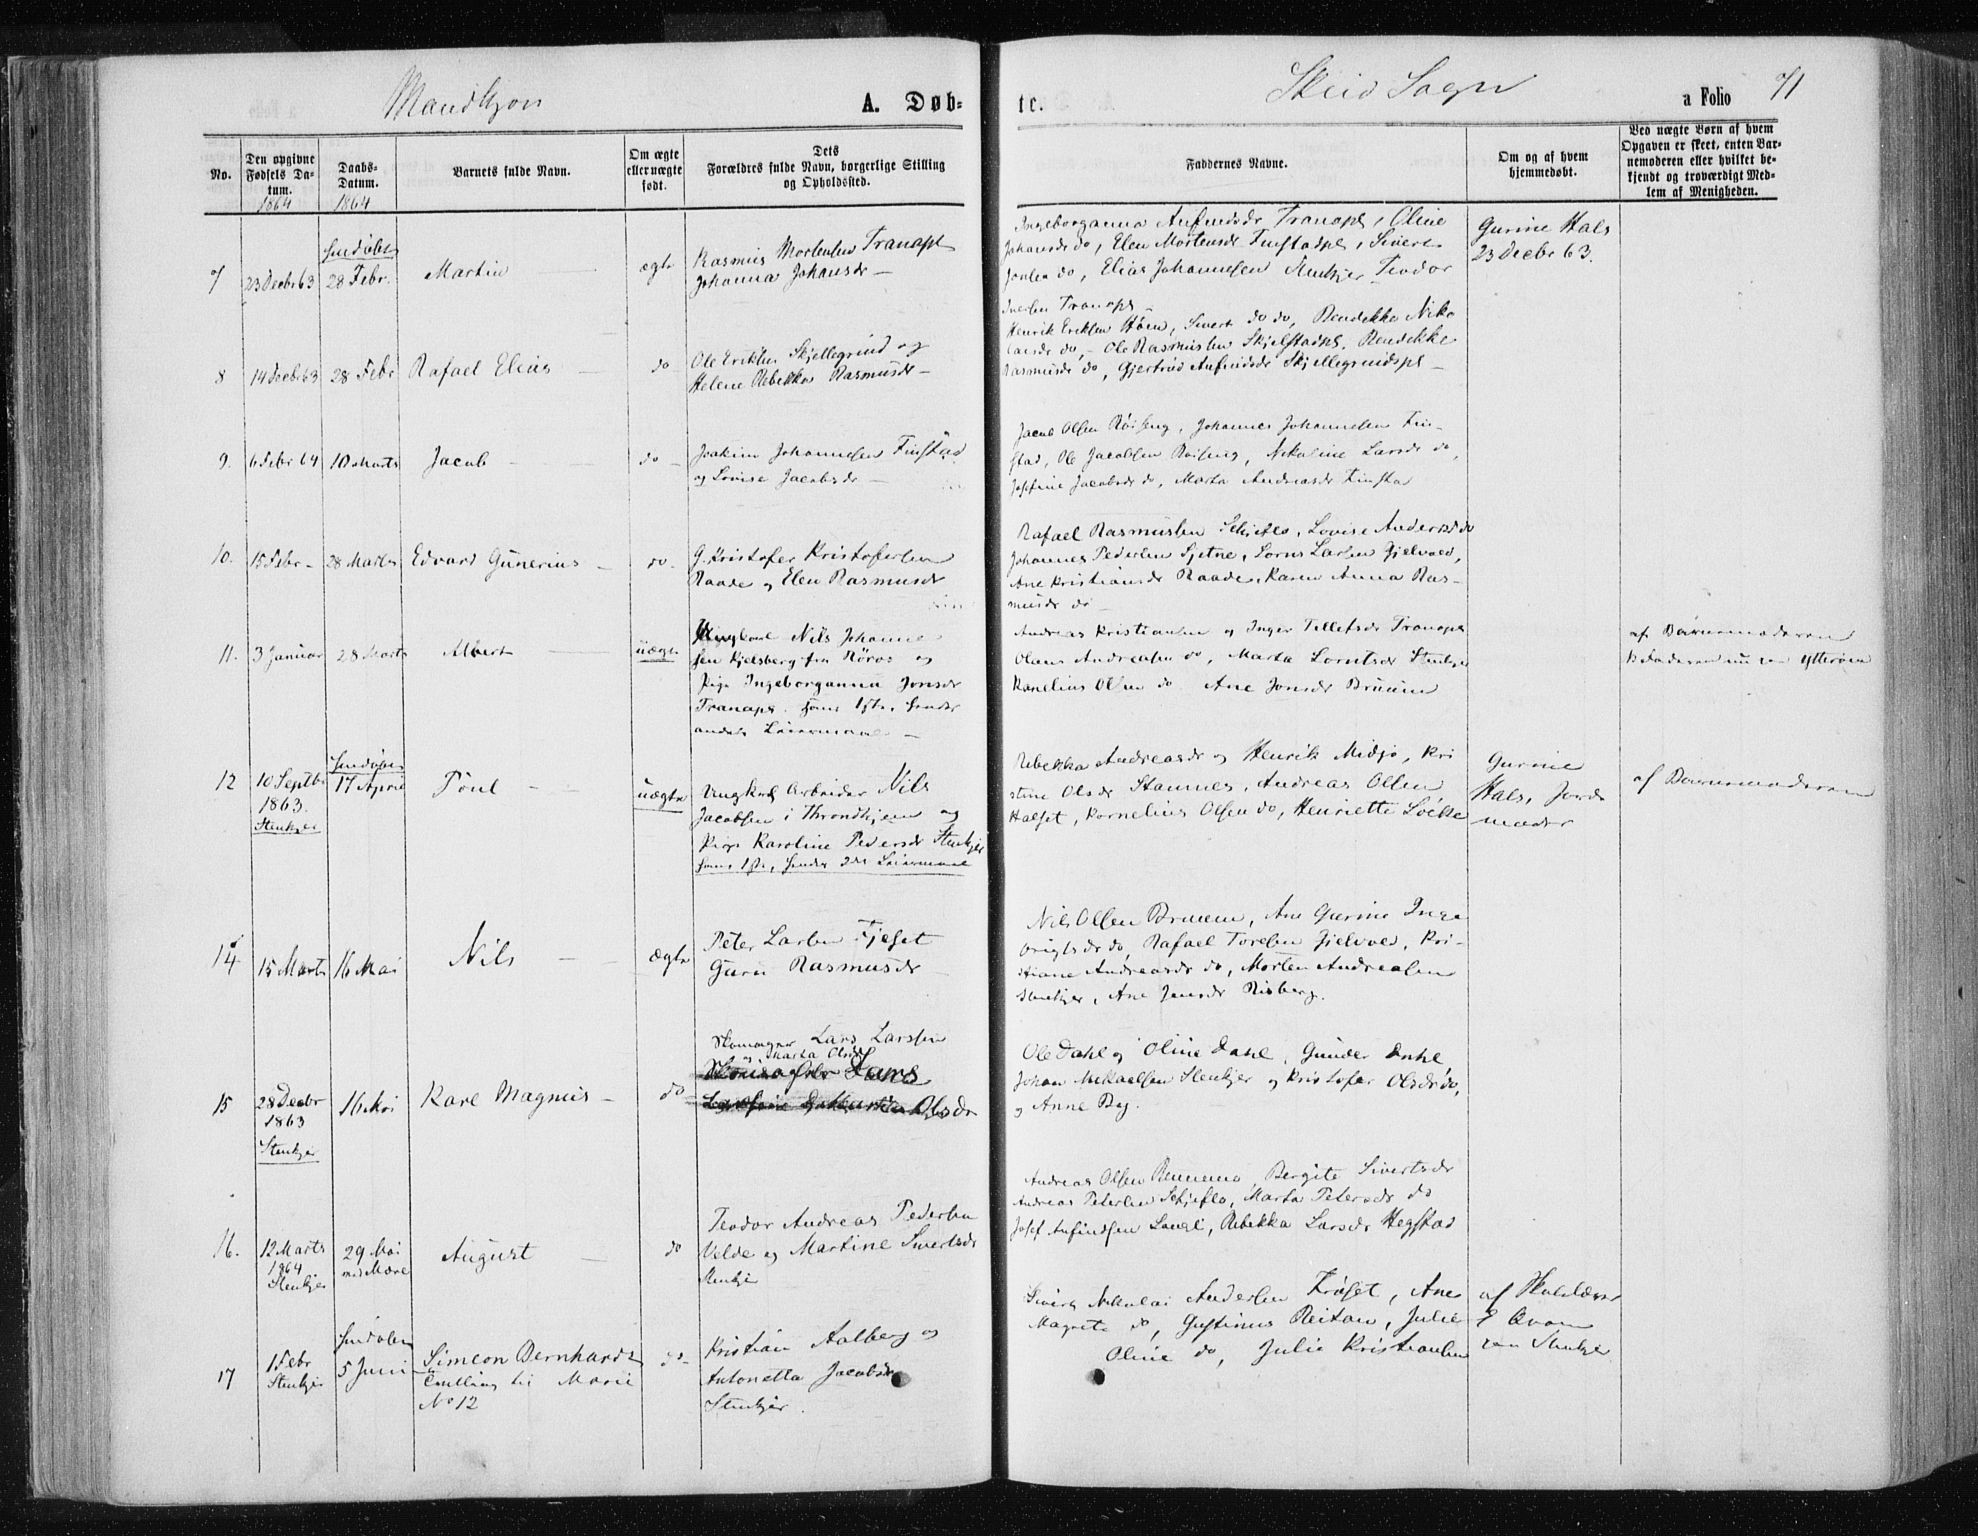 Mandkjøn
A. Døbte.
Skeid Sogn
a Folio 71
No.
Den opgivne Fødsels Datum. 1864
Daabs-Datum. 1864
Barnets fulde Navn.
Om ægte eller uægte født.
Dets Forældres fulde Navn, borgerlige Stilling og Opholdssted.
Faddernes Navne.
Om og af hvem hjemmedøbt.
Ved uægte Børn af hvem Opgaven er skeet, enten Barnemoderen eller hvilket bekjendt og troværdigt Medlem af Menigheden.
7
23 Decbr 63
28 Febr.
Martin
ægte
Rasmus Mortensen Tranapl
Johanna Johansdr
Ingeborganna Anfindsdr Tranapl, Oline
Johansdr do, Elen Mortensdr Finstadpl, Sivert
do, Elias Johannessen Stenkjer, Teodor
Iversen Tranapl
Gurine Hals
23 Decbr 63.
8
14 Decbr 63
28 Febr
Rafael Elias
do
Ole Eriksen Skjellegrind og
Helene Rebekka Rasmusdr
Henrik Eriksen Høen, Sivert do do, Rendekka Niko
laisdr do, Ole Rasmussen Skjelstadpl, Rendekke
Rasmusdr do, Gjertrud Anfindsdr Skjellegrindspl
9.
6 Febr 64
10 Marts
Jacob
do
Joakim Johannessen Finstad
og Lovise Jacobsdr
Jacob Olsen Røiseng, Johannes Johannessen Fin-
stad, Ole Jacobsen Røiseng, Nikoline Larsdr do,
Josefine Jacobsdr do, Marta Andreasdr Finstad
10.
15 Febr
28 Marts
Edvard Gunerius
do
G. Kristofer Kristofersen
Raade og Elen Rasmusdr
Rafael Rasmussen Skjeflo, Lovise Andersdr do
Johannes Pedersen Sjetne, Lorns Larsen Gjelvold,
Ane Kristiansdr Raade, Karen Anna Ras-
musdr do
11.
3 Januar
28 Marts
Albert
uægte
Ungkarl Nils Johanne
sen Kjelsberg fra Røros og
Pige Ingeborganna Jonsdr
Tranapl. hans 1ste, hendes
andet Leiermaal
Andreas Kristiansen og Inger Tellefsdr Tranapl
Olaus Andreassen do, Marta Lorntsdr Stenkjer
Kornelius Olsen do. Ane Jonsdr Bruem
af Barnemoderen
12
10 Septbr
1863.
Stenkjer
17 April
Poul
uægte
Ungkarl Arbeider Nils
Jacobsen i Throndhjem og
Pige Karoline Pedersdr Stenkjer
hans 1ste, hendes 2det Leiermaal
Rebekka Andreasdr og Henrik Midjo, Kri
stine Olsdr Stamnes, Andreas Olsen
Halset, Kornelius Olsen do, Henriette Løcke
Gurine
Hals, Jorde
moder
af Barnemoderen
14
15 Marts
16 Mai
Nils
ægte
Peter Larsen Fjeset
Guru Rasmusdr
Nils Olsen Bruem, Ane Gurine Inge
brigtsdr do, Rafael Toresen Gjelvold, Kri-
stiane Andreasdr do, Morten Andreasen
Stenkjer, Ane Jensdr Risberg.
15
28 Decbr
1863
Stenkjer
16 Mai
Karl Magnus
do
Skomager Lars Larssen
og Marta Olsdr
Ole Dahl og Oline Dahl, Gunder Dahl,
Johan Mikaelsen Stenkjer og Kristofer Olsdr do,
og Anne By.
16.
12 Marts
1864
Stenkjer
29 Mai
ved Mære
August
do
Teodor Andreas Pedersen
Velde og Martine Sivertsdr
Stenkjer
Andreas Olsen, Bergite Sivertsdr
Andreas Petersen Skjeflo, Marta Petersdr do
Josef Anfindsen, Rebekka Larsdr Hegstad
17
1 Febr
Stenkjer
5 Juni
Simeon Bernhard
Tvilling til Marie
No 12
do
Kristian Aalberg og
Antonetta Jacobsdr
Stenkjer.
Sivert Nikolai Andersen Frøset, Ane
Magrete do, Gustinus Reitan, Julie
Oline do, Julie Kristiansen
af Skolelærer
Qvam
Stenkjer